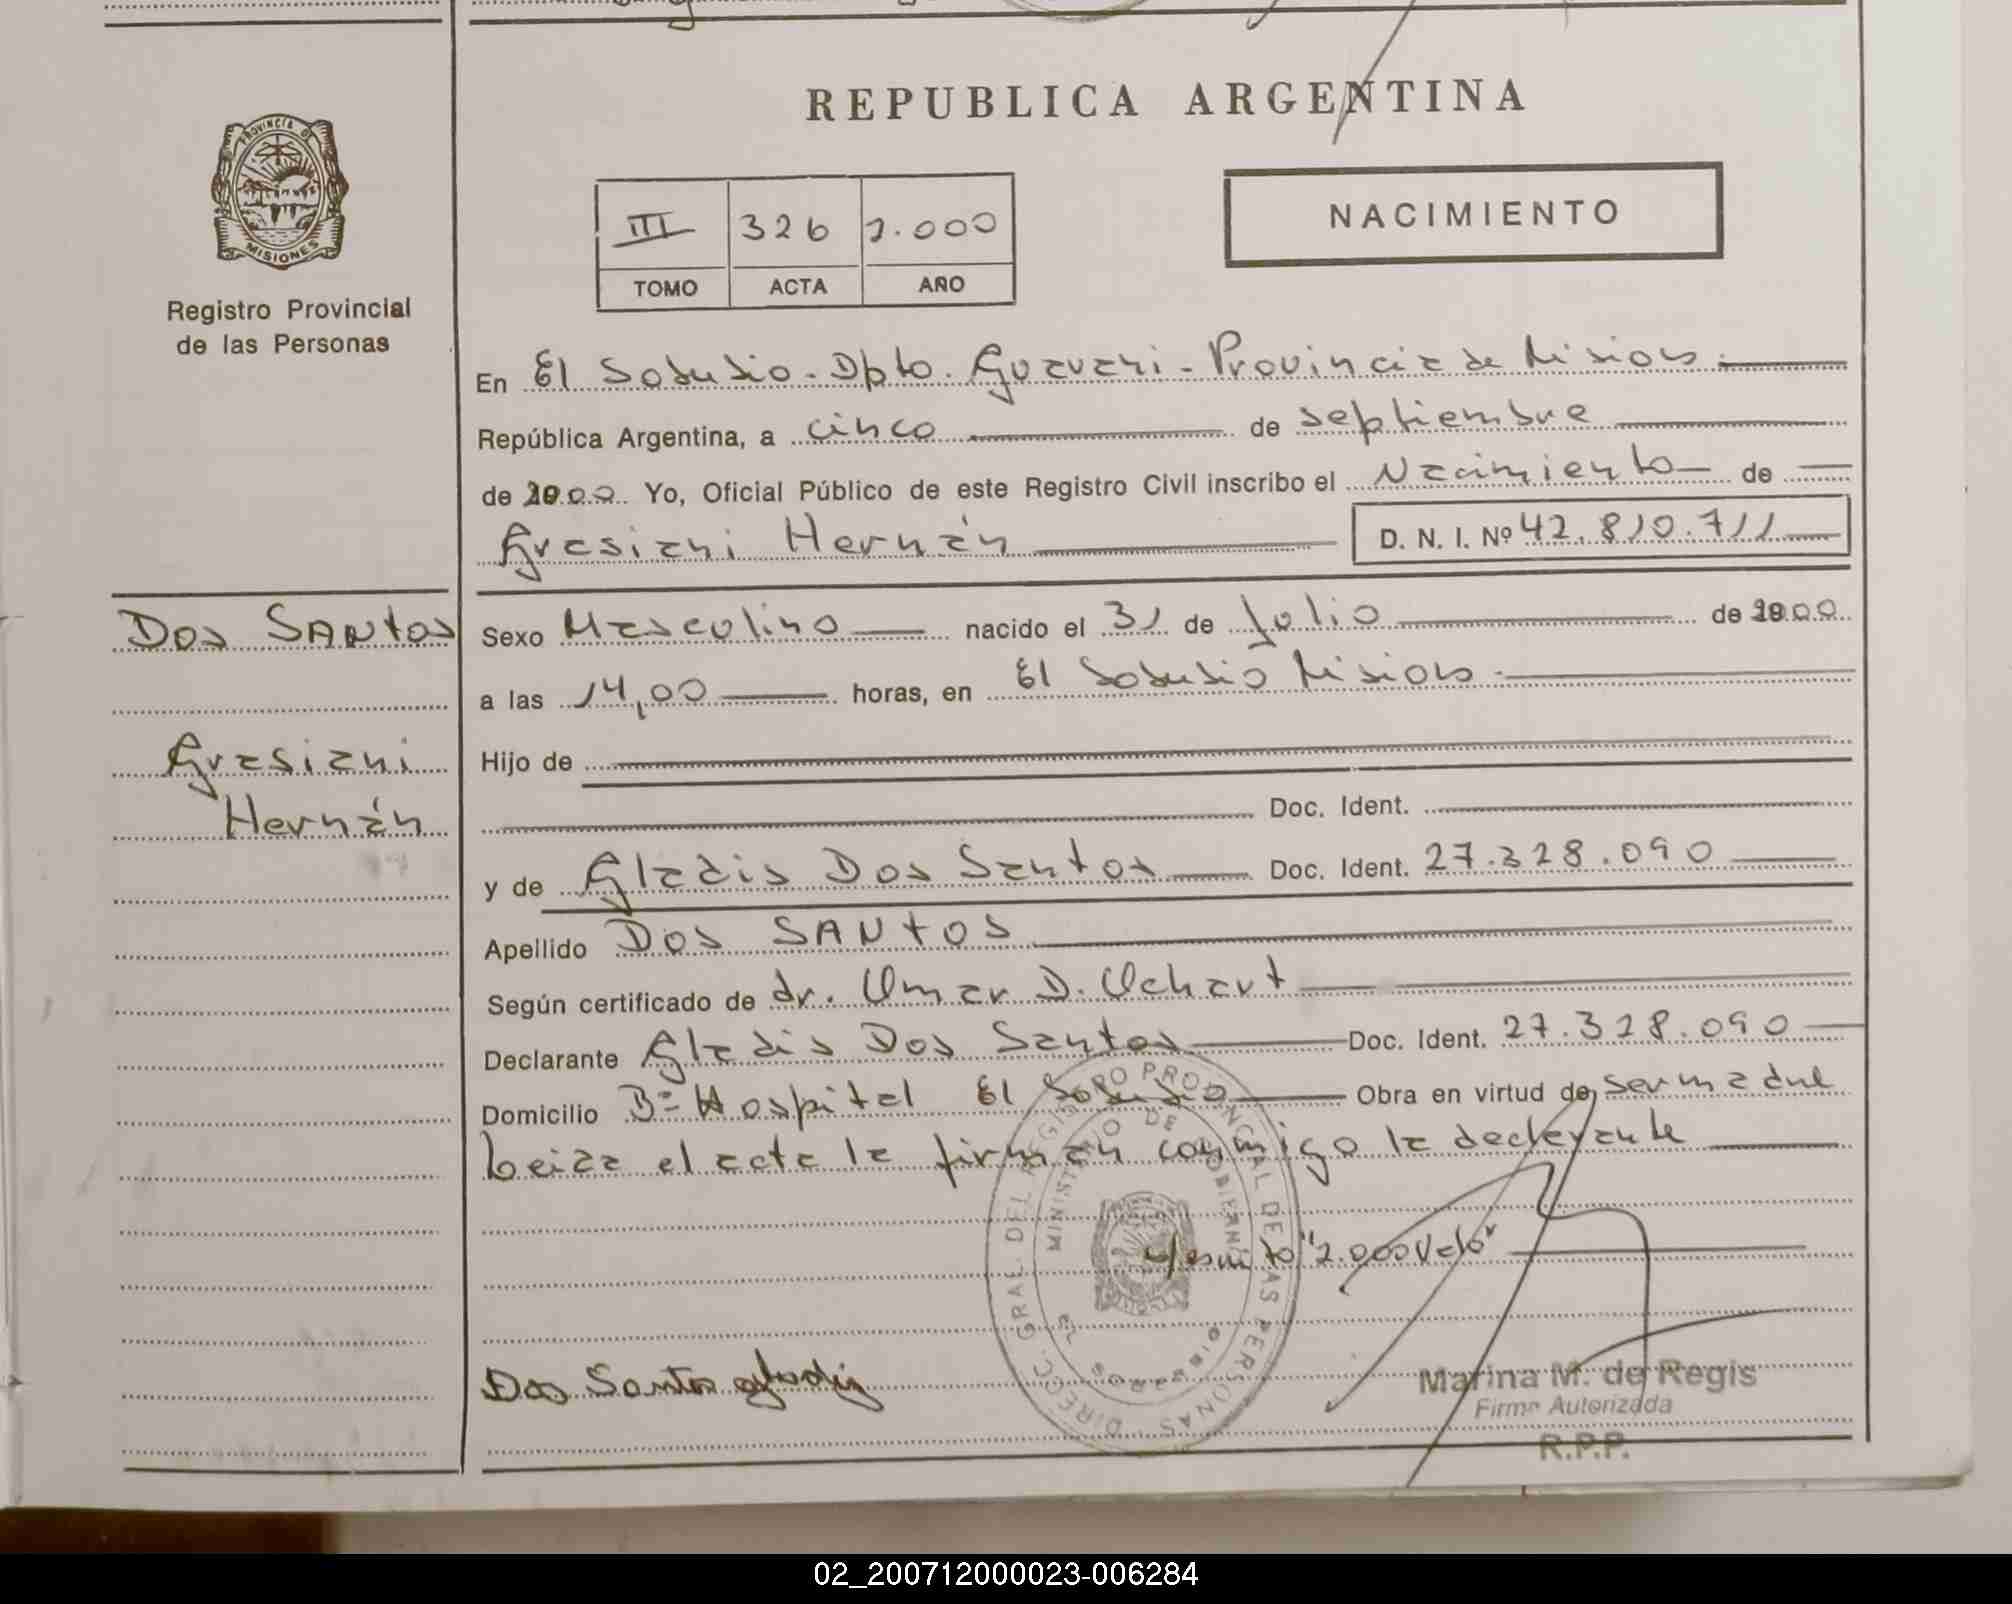 REPUBLICA ARGENTINA
PROVINCIA DE
MISIONES
Registro Provincial
de las Personas
III 326 2.000
TOMO ACTA AÑO
NACIMIENTO
En El Soberbio - Dpto. Guaraní - Provincia de Misiones.
República Argentina, a cinco de septiembre
de 2000 Yo, Oficial Público de este Registro Civil inscribo el Nacimiento de
Grasiani Hernán D. N. I. Nº 42.810.711
DOS SANTOS
Grasiani
Hernán
Sexo Masculino nacido el 31 de Julio de 2000
a las 14,00 horas, en El Soberbio Misiones
Hijo de
Doc. Ident.
y de Gladis Dos Santos Doc. Ident. 27.328.090
Apellido DOS SANTOS
Según certificado de dr. Omar D.
Declarante Gladis Dos Santos Doc. Ident. 27.328.090
Domicilio Bº Hospital El Soberbio Obra en virtud de ser madre
Leída el acta la firman conmigo la declarante
s/escrito "2.000 Vale"
DIRECC. GRAL. DEL REGISTRO PROVINCIAL DE LAS PERSONAS
MINISTERIO DE GOBIERNO
EL SOBERBIO
Dos Santos gladis
Marina M. de Regis
Firma Autorizada
R.P.P.
02_200712000023-006284